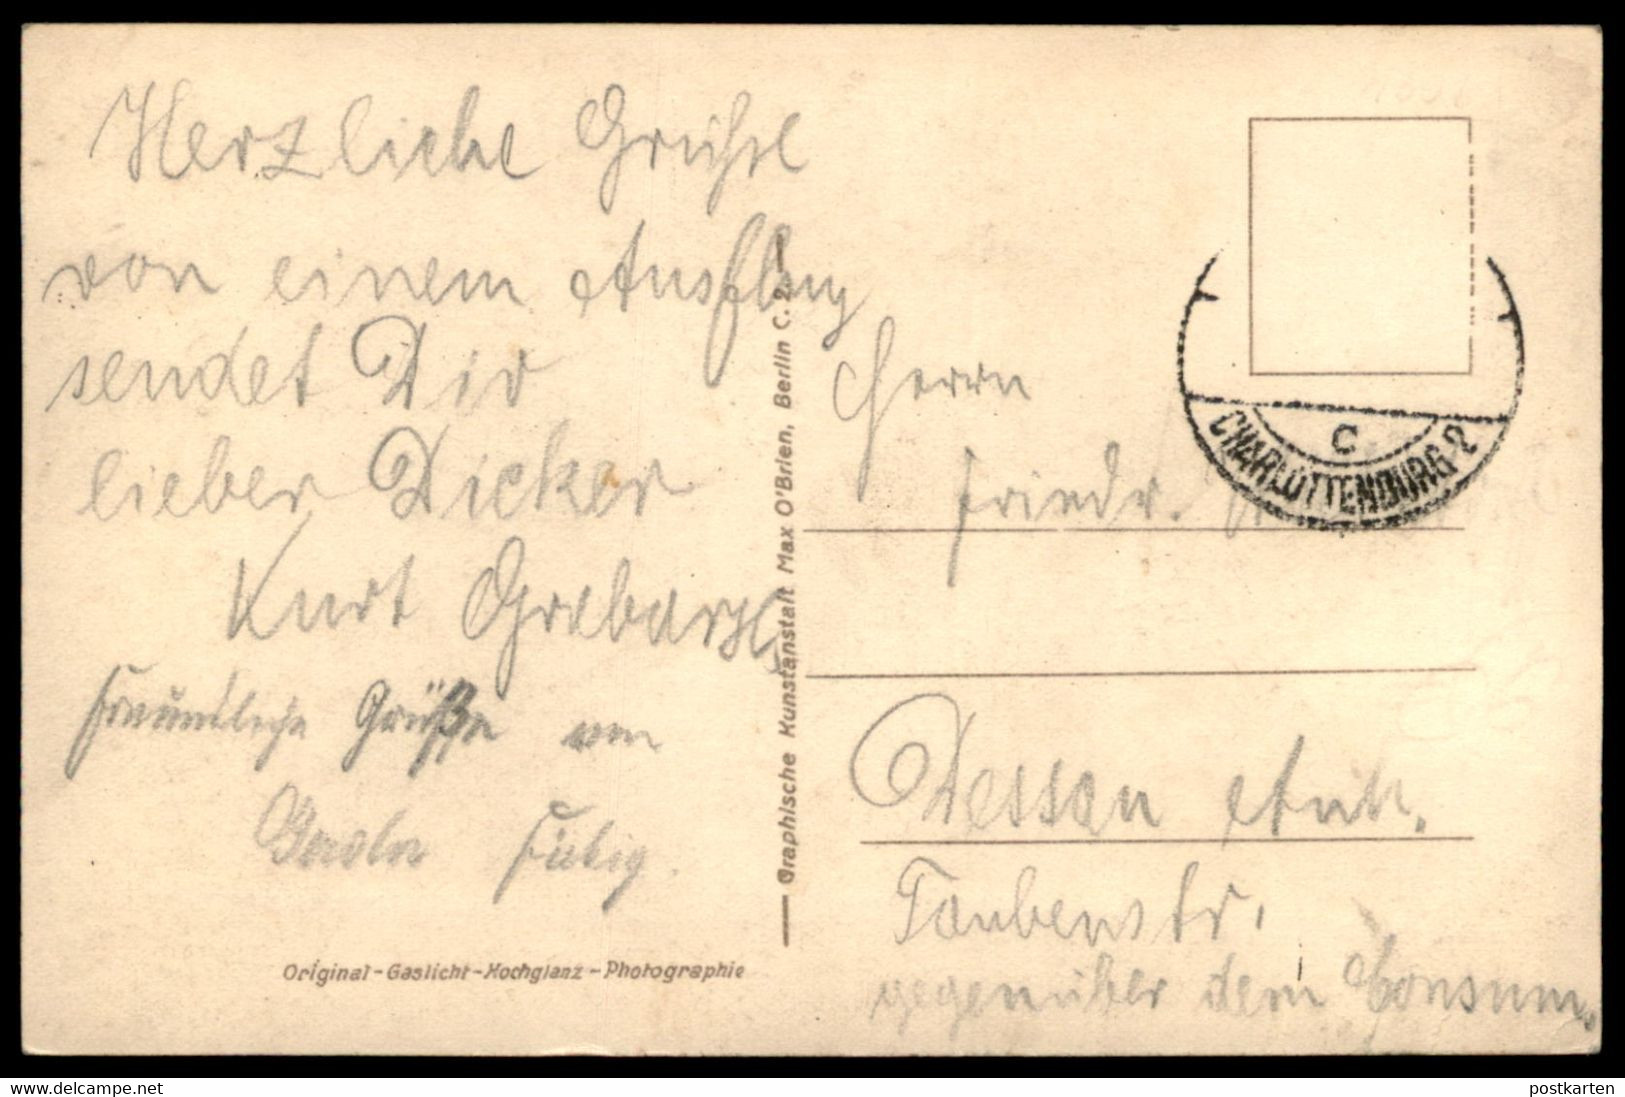 Herzliche Grüße
von einem Ausflug
sendet Dir
lieber Dicker
Kurt
Freundliche Grüße von
Graphische Kunstanstalt Max O'Brien, Berlin C. 2.
Original-Gaslicht-Hochglanz-Photographie
C
CHARLOTTENBURG 2
Herrn
Friedr.
Dessau Anh.
Taubenstr.
gegenüber dem Consum.
www.delcampe.net
postkarten